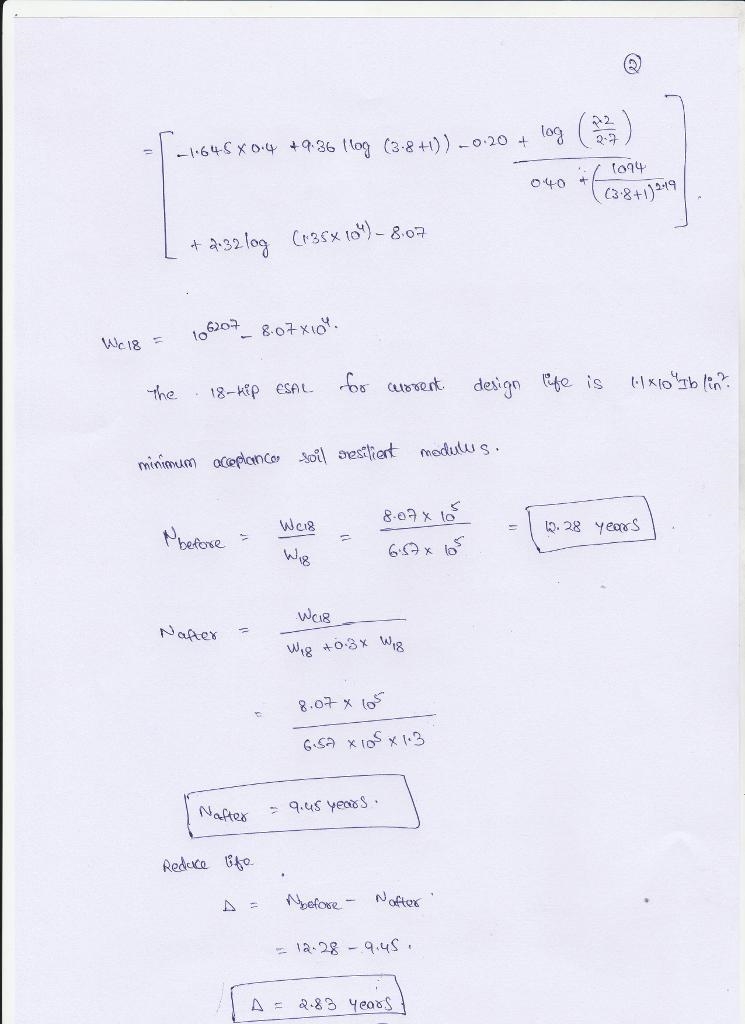 2
= [ -1.645 x 0.4 + 9.36 (log (3.8+1)) - 0.20 + log (2.2/2.7) / 0.40 + (1094/(3.8+1)^2.19)
+ 2.32 log (1.35 x 10^4) - 8.07 ]
Wc18 = 10^6207 - 8.07 x 10^4.
The 18-kip ESAL for current design life is 1.1 x 10^4 Ib/in^2.
minimum acceptance soil resilient modulus.
Nbefore = Wc18/W18 = 8.07 x 10^5 / 6.57 x 10^5 = 12.28 years
Nafter = Wc18 / W18 + 0.3 x W18
= 8.07 x 10^5 / 6.57 x 10^5 x 1.3
Nafter = 9.45 years.
Reduce life
Δ = Nbefore - Nafter
= 12.28 - 9.45.
Δ = 2.83 years